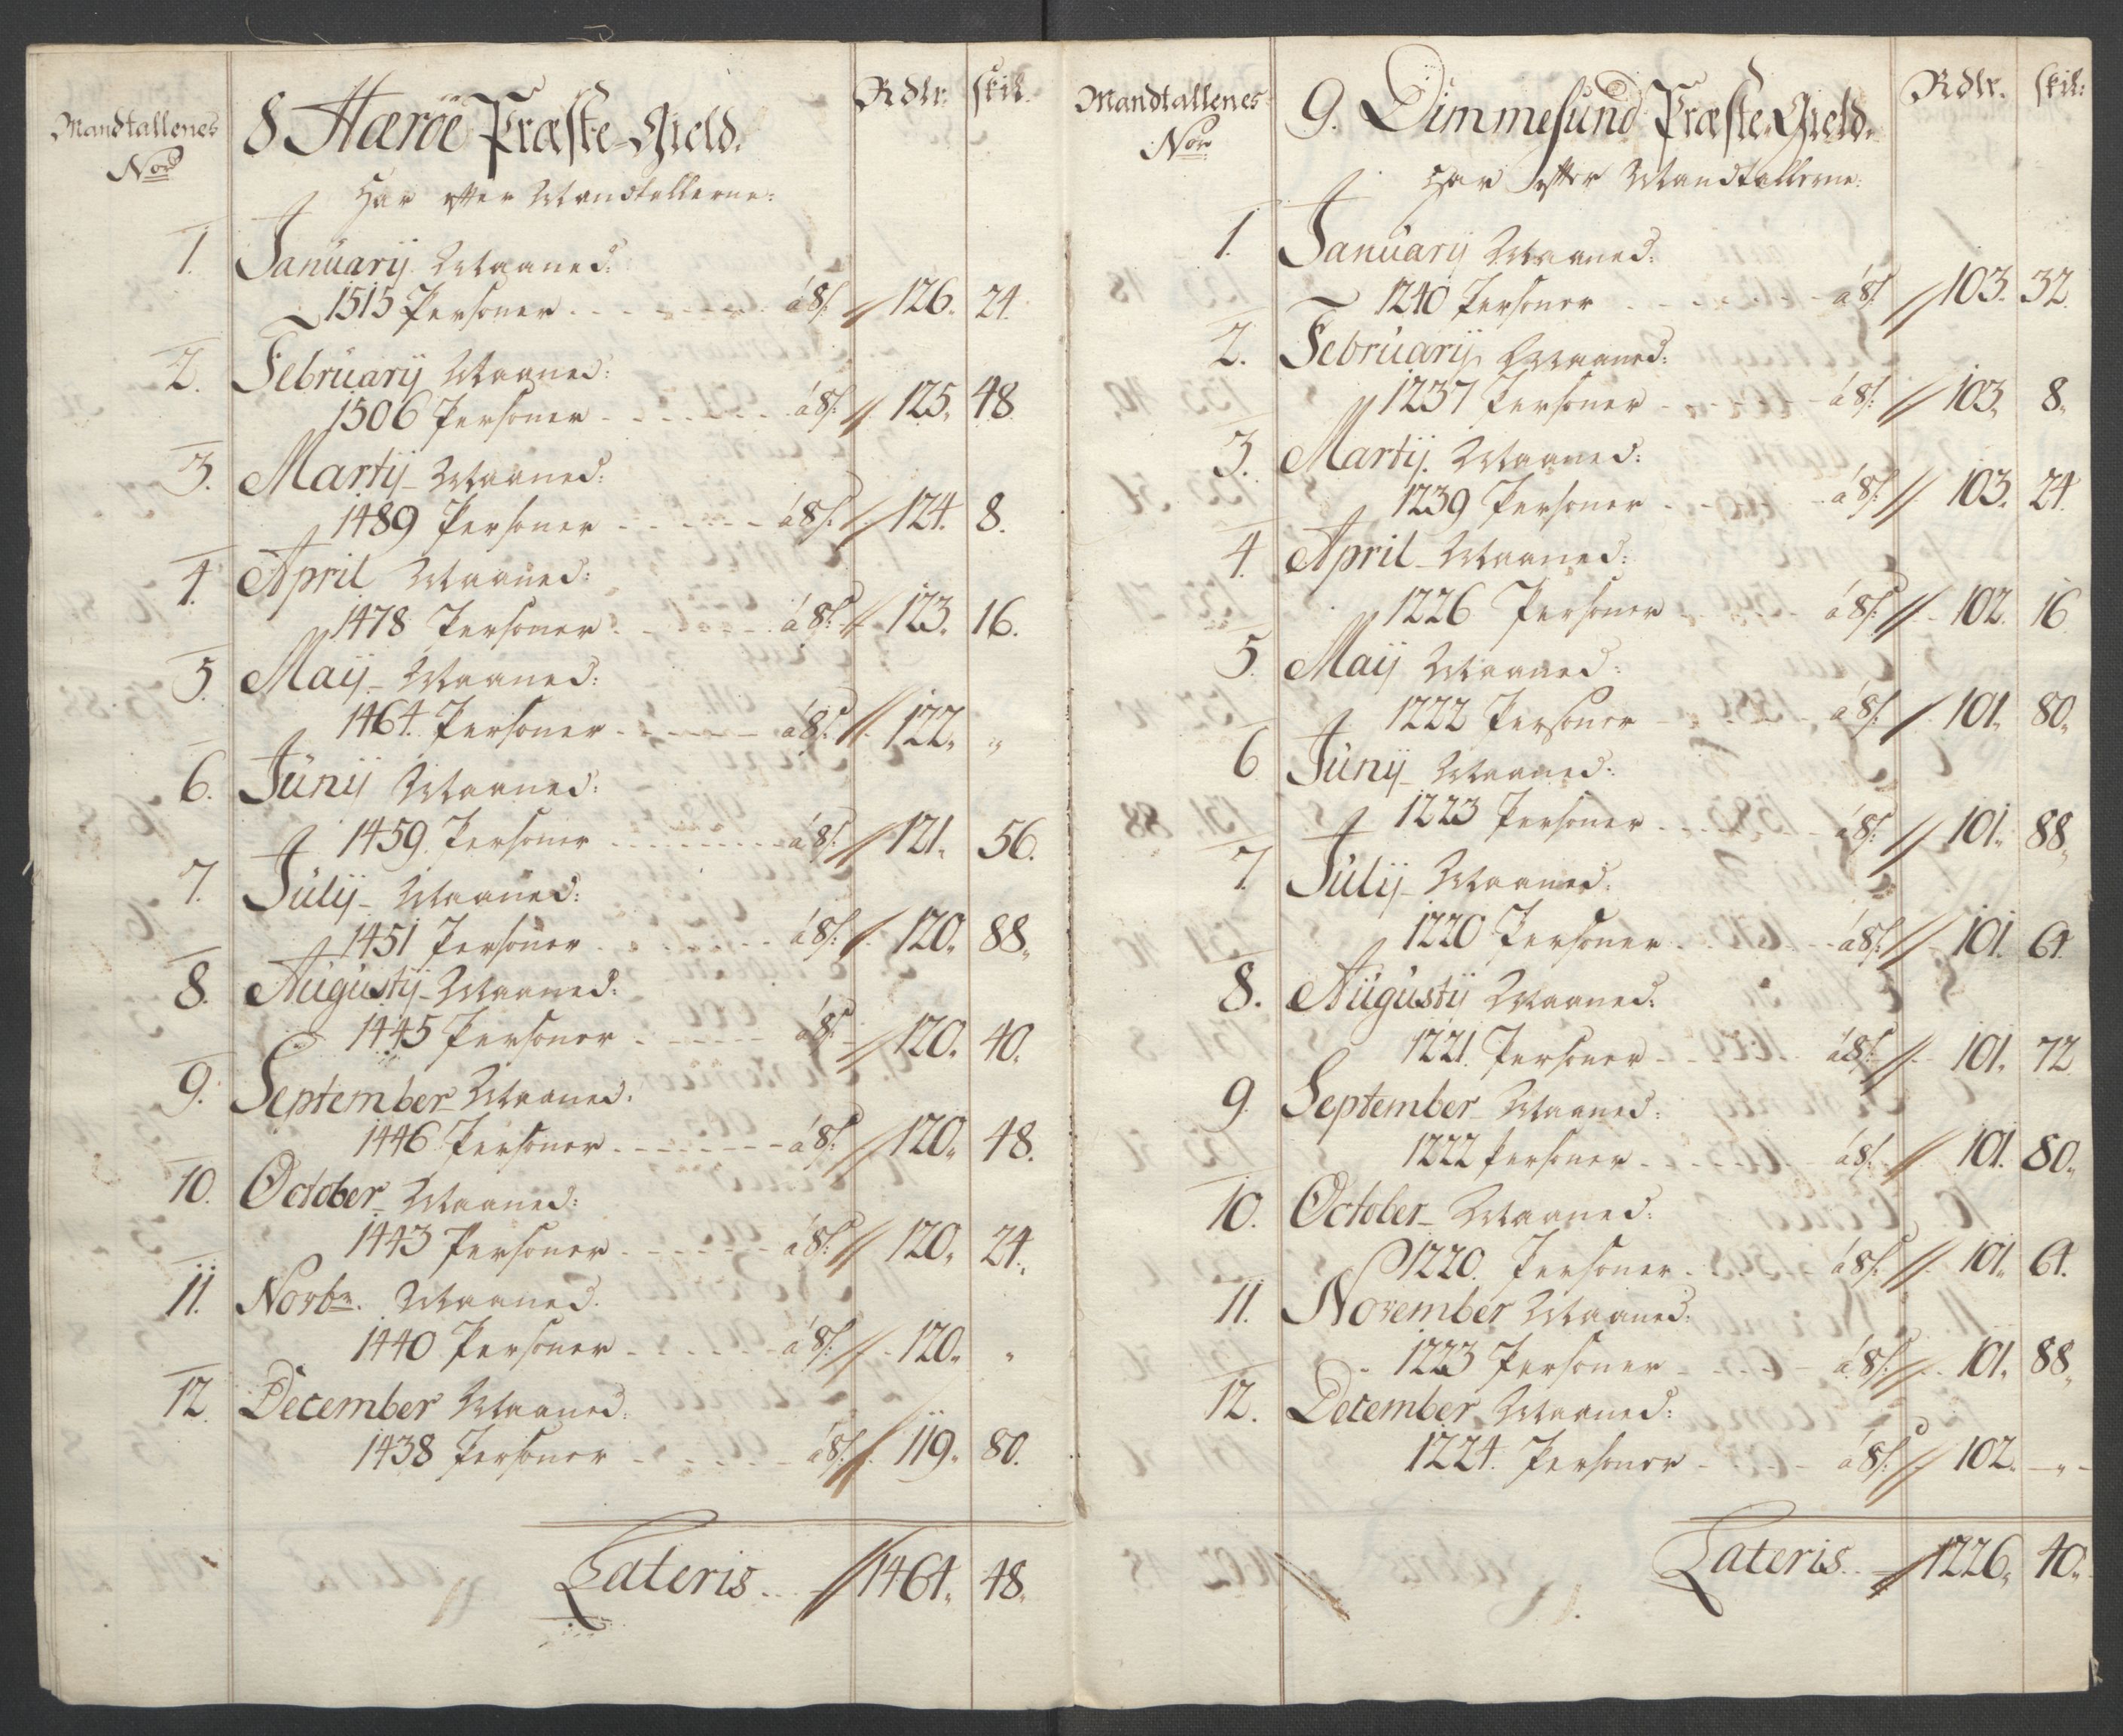 Mandtallenes
Nor
8 Hæröe Præste-Gield.
Rdlr. skil.
Har efter Mandtallerne:
1. Januarij Maaned:
1515 Personer . . . . . á 8 s: // 126. 24.
2. Februarij Maaned:
1506 Personer . . . . . á 8 s: // 125. 48.
3. Martij Maaned:
1489 Personer . . . . . á 8 s: // 124. 8.
4. April Maaned:
1478 Personer . . . . . á 8 s: // 123. 16.
5. Maij Maaned:
1464. Personer . . . . . á 8 s: // 122. "
6. Junij Maaned:
1459. Personer . . . . . á 8 s: // 121. 56.
7. Julij Maaned:
1451 Personer . . . . . á 8 s: // 120. 88.
8. Augustij Maaned:
1445 Personer . . . . . á 8 s: // 120. 40.
9. September Maaned:
1446 Personer . . . . . á 8 s: // 120. 48.
10. October Maaned:
1443 Personer . . . . . á 8 s: // 120. 24.
11. Novbr. Maaned.
1440 Personer . . . . . á 8 s: // 120. "
12. December Maaned:
1438 Personer . . . . . á 8 s: // 119. 80.
Lateris . . // 1464. 48.
Mandtallenes
Nor
9. Dimmesund Præste-Gield.
Rdlr. skil:
Har efter Mandtallerne:
1. Januarij Maaned:
1240 Personer . . . . . á 8 s: // 103. 32.
2. Februarij Maaned:
1237 Personer . . . . . á 8 s: // 103. 8.
3. Martij. Maaned:
1239 Personer . . . . . á 8 s: // 103. 24.
4. April Maaned:
1226 Personer . . . . . á 8 s: // 102. 16
5. Maij Maaned:
1222 Personer . . . . . á 8 s: // 101. 80.
6 Junij Maaned:
1223 Personer . . . . . á 8 s: // 101. 88.
7. Julij Maaned:
1220 Personer . . . . . á 8 s: // 101. 64.
8. Augustij Maaned:
1221. Personer . . . . . á 8 s: // 101. 72
9. September Maaned:
1222 Personer . . . . . á 8 s: // 101. 80.
10. October Maaned:
1220. Personer . . . . . á 8 s: // 101. 64.
11. November Maaned:
1223 Personer . . . . . á 8 s: // 101. 88.
12. December Maaned:
1224. Personer . . . . . á 8 s: // 102. "
Lateris . . // 1226. 40.